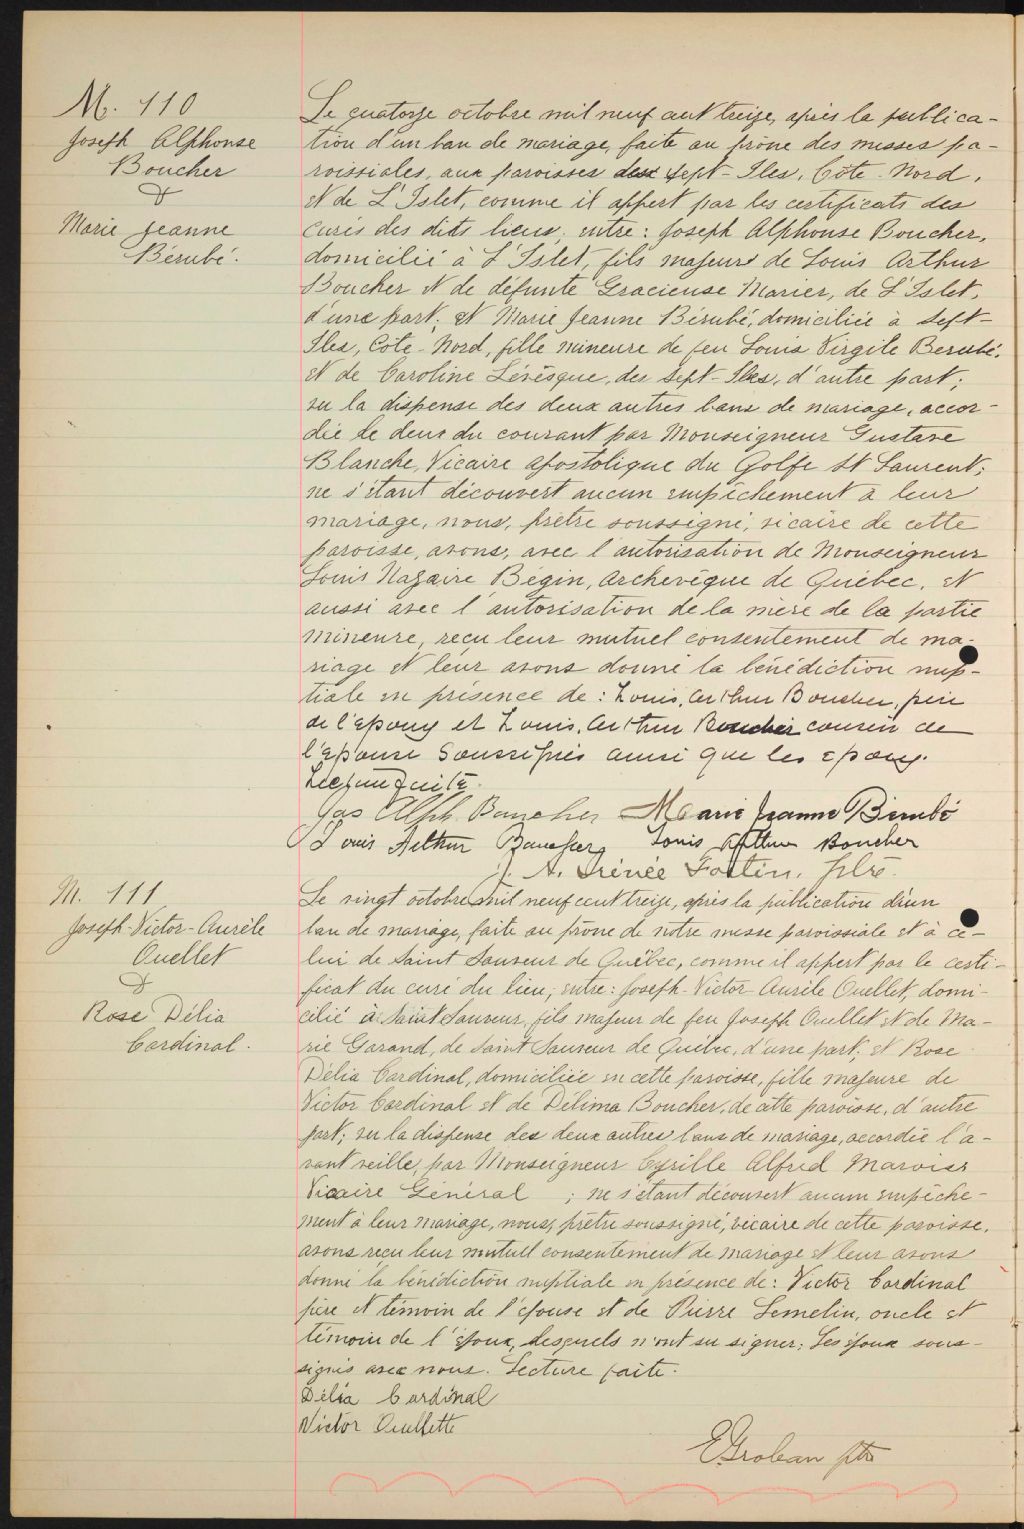 M. 110
Joseph Alphonse
Boucher
&
Marie Jeanne
Bérubé.
Le quatorze octobre mil neuf cent treize, après la publica-
tion d'un ban de mariage, faite au prône des messes pa-
roissiales, aux paroisses des Sept-Iles, Côte-Nord,
et de L'Islet, comme il appert par les certificats des
curés des dits lieux; entre: Joseph Alphonse Boucher,
domicilié à L'Islet, fils majeur de Louis Arthur
Boucher et de défunte Gracieuse Marier, de L'Islet,
d'une part; et Marie Jeanne Bérubé, domiciliée à Sept-
Iles, Côte-Nord, fille mineure de feu Louis Virgile Berubé,
et de Caroline Lévèsque, des Sept-Iles, d'autre part;
vu la dispense des deux autres bans de mariage, accor-
dée le deux du courant par Monseigneur Gustave
Blanche, Vicaire Apostolique du Golfe St Laurent;
ne s'étant découvert aucun empêchement à leur
mariage, nous, prêtre soussigné, vicaire de cette
paroisse, avons, avec l'autorisation de Monseigneur
Louis Nazaire Bégin, Archevêque de Québec, et
aussi avec l'autorisation de la mère de la partie
mineure, reçu leur mutuel consentement de ma-
riage et leur avons donné la bénédiction nup-
tiale en présence de: Louis, Arthur Boucher, père
de l'Epoux et Louis, Arthur Boucher cousin de
l'Epouse Soussignés ainsi que les Epoux.
Lecture faite.
Jos Alph. Boucher Marie Jeanne Bérubé
Louis Arthur Boucher Louis Arthur Boucher
J. A. Irénée Fortin, ptre.
M. 111
Joseph-Victor-Aurèle
Ouellet
&
Rose Délia
Cardinal.
Le vingt octobre mil neuf cent treize, après la publication d'un
ban de mariage, faite au prône de notre messe paroissiale et à ce-
lui de Saint Sauveur de Québec, comme il appert par le certi-
ficat du curé du lieu; entre: Joseph-Victor-Aurèle Ouellet, domi-
cilié à Saint Sauveur, fils majeur de feu Joseph Ouellet et de Ma-
rie Garand, de Saint Sauveur de Québec, d'une part; et Rose
Délia Cardinal, domiciliée en cette paroisse, fille majeure de
Victor Cardinal et de Délima Boucher, de cette paroisse, d'autre
part; vu la dispense des deux autres bans de mariage, accordée l'a-
vant veille, par Monseigneur Cyrille Alfred Marois
Vicaire Général ; ne s'étant découvert aucun empêche-
ment à leur mariage, nous, prêtre soussigné, vicaire de cette paroisse,
avons reçu leur mutuel consentement de mariage et leur avons
donné la bénédiction nuptiale en présence de: Victor Cardinal
père et témoin de l'épouse et de Pierre Lemelin, oncle et
témoin de l'époux, lesquels n'ont su signer; Les époux sous-
signés avec nous. Lecture faite.
Délia Cardinal
Victor Ouellette
E. Grolean ptre